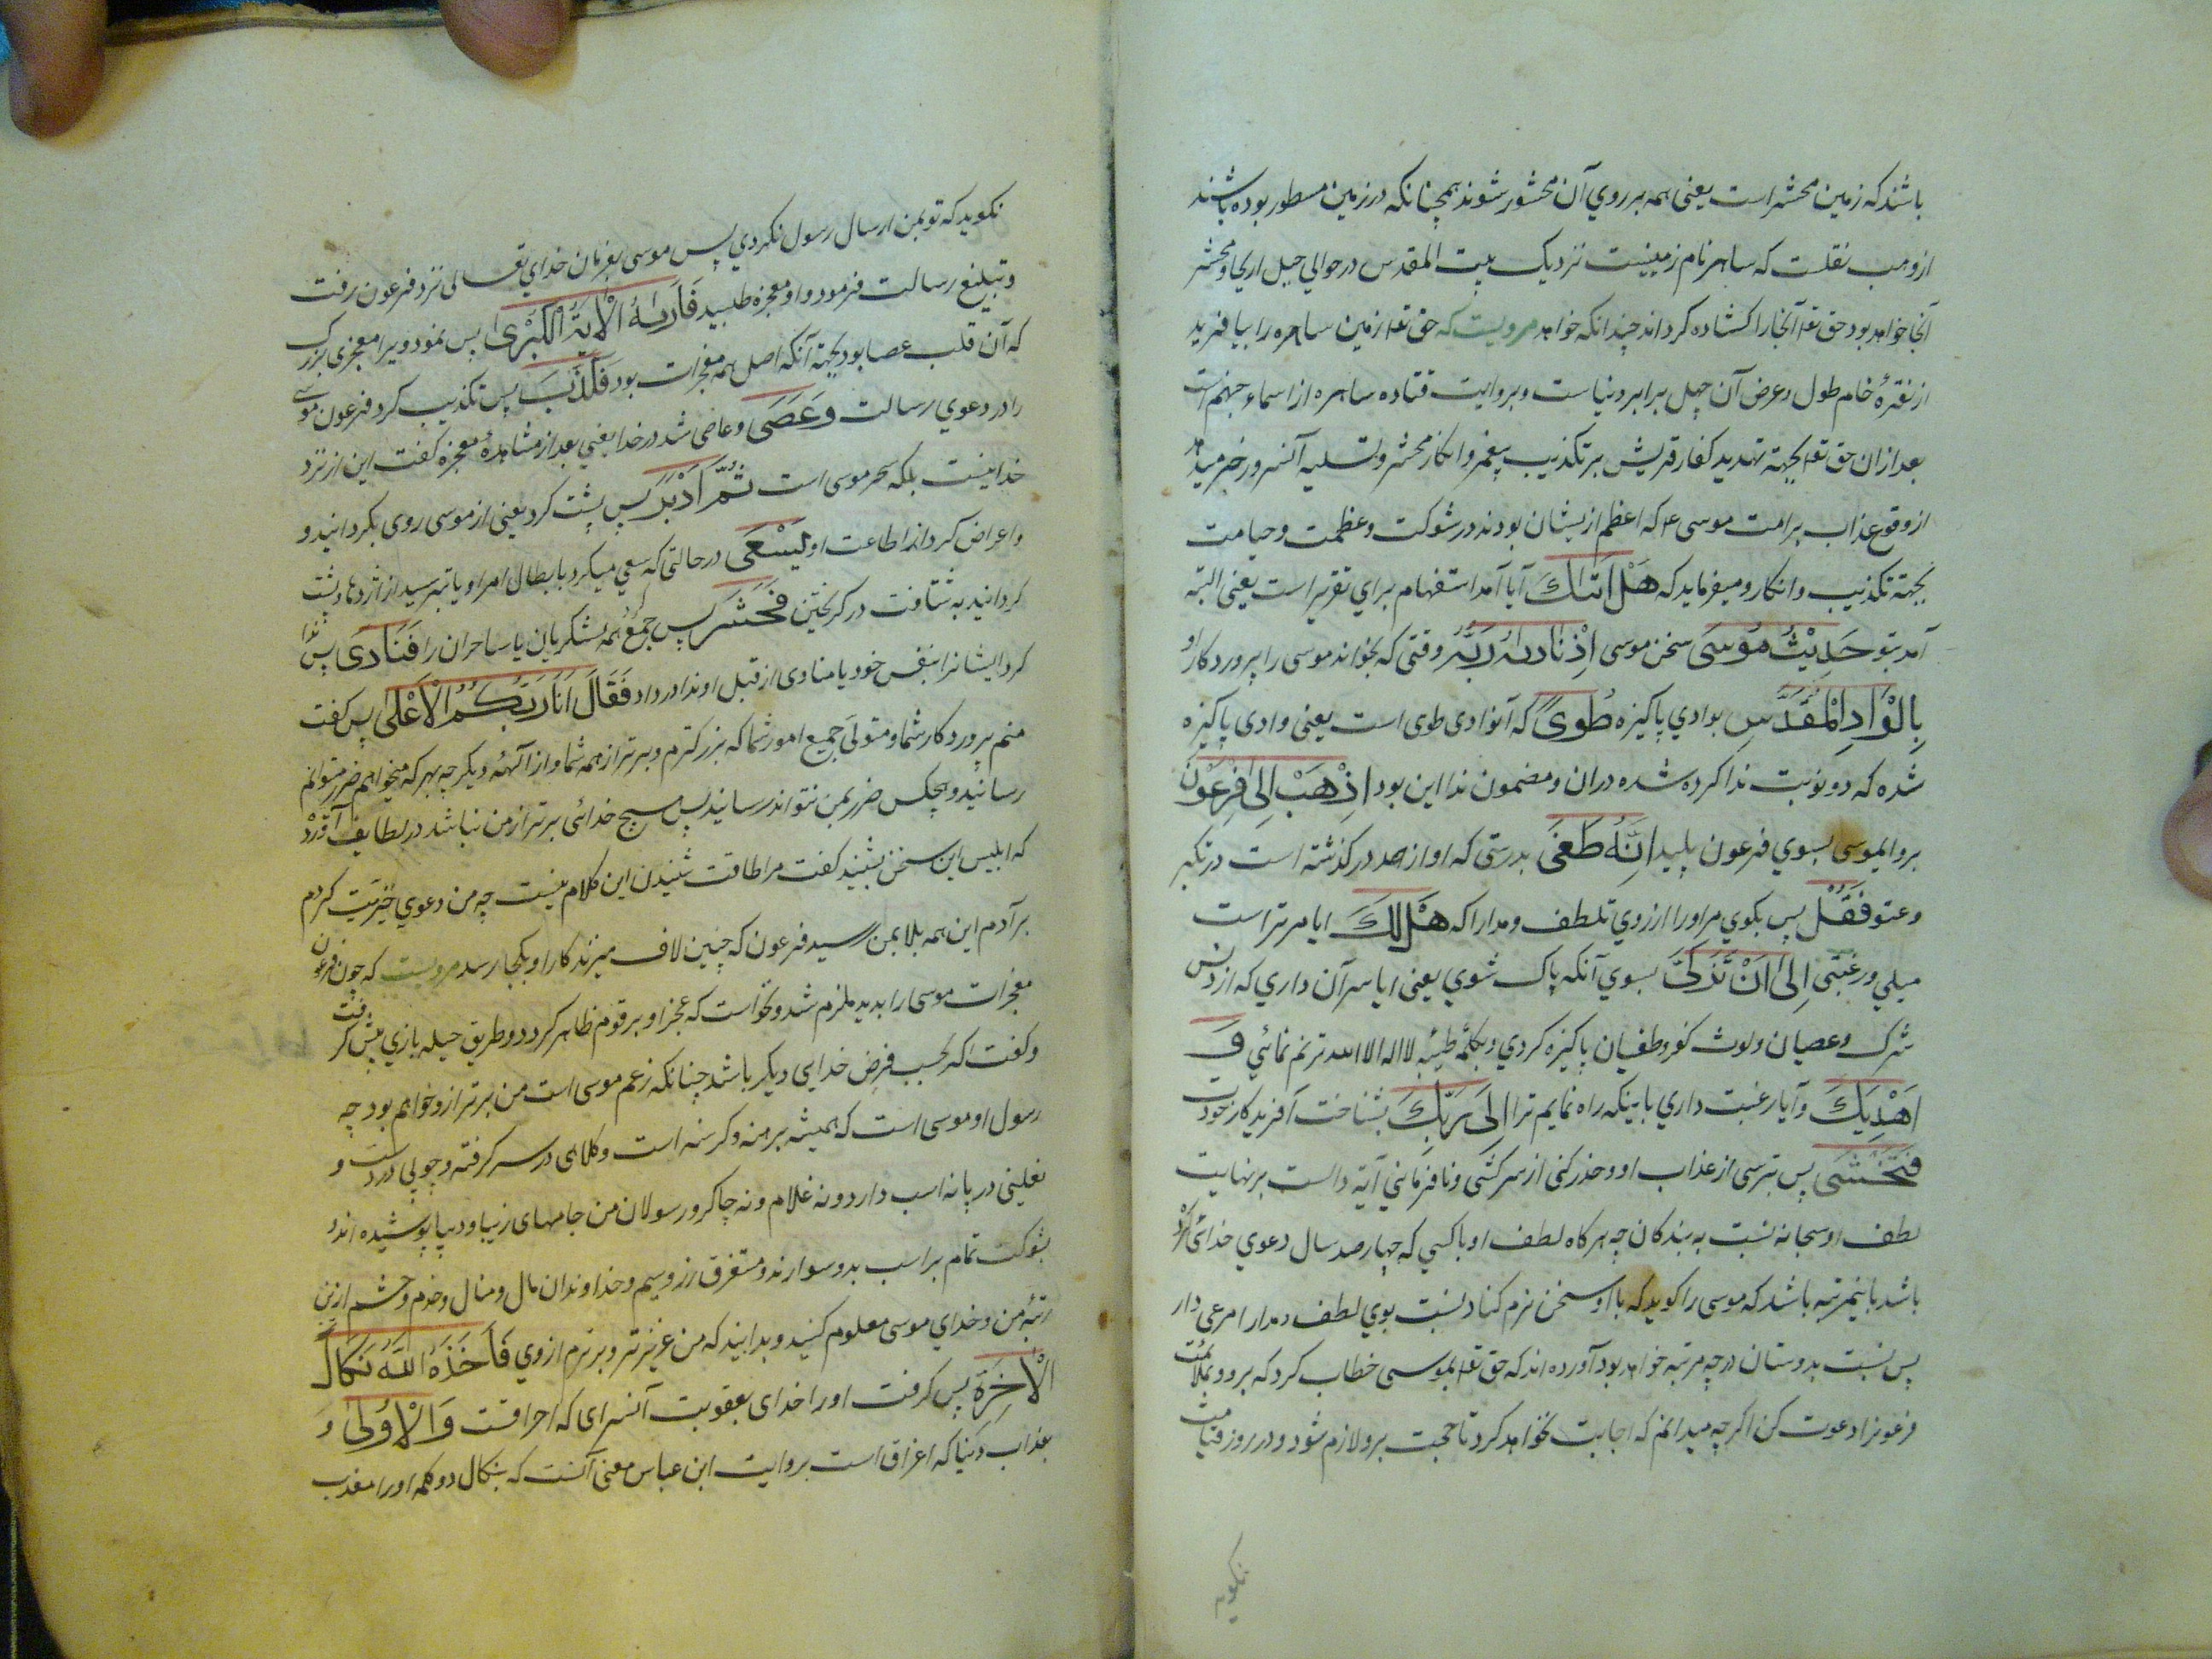 باشند که زمین محشر است یعنی همه بر روی آن محشور شوند همچنانکه در زمین مسطور بوده باشند
از وهب نقلست که ساهره نام زمینیست نزدیک بیت المقدس در حوالی جبل اریحا و محشر
آنجا خواهد بود حق تعا آنجا را کشاده کرداند چندانکه خواهد مرویست که حق تعا زمین ساهره را بیافریند
از نقرهٔ خام طول و عرض آن چهل برابر دنیاست و بروایت قتاده ساهره از اسماء جهنم است
بعد ازان حق تعا بجهة تهدید کفار قریش بر تکذیب پیغمبر و انکار محشر و تسلیه آنسرور خبر میدهد
از وقوع عذاب بر امت موسی ع که اعظم ازیشان بودند در شوکت و عظمت و
بجهة تکذیب و انکار و میفرماید که هَلْ اَتٰاکَ آیا آمد استفهام برای تقریر است یعنی البته
آمد بتو حَدِیْثُ مُوسَی سخن موسی اِذْ نَادٰیهُ رَبُّهُ وقتی که بخواند موسی را پروردکار او
بِالْوٰادِ الْمُقَدَّسِ بوادی پاکیزه طُوًی که آنوادی طوی است یعنی وادی پاکیزه
شده که دو نوبت ندا کرده شده دران و مضمون ندا این بود اِذْهَبْ اِلٰی فِرْعَوْنَ
برو ایموسی بسوی فرعون پلید اِنَّهُ طَغَی بدرستی که او از حد در کذشته است در تکبر
و عتو فَقُلْ پس بکوی مر اورا از روی تلطف و مدارا که هَلْ لَکَ ایا مر تراست
میلی و رغبتی اِلٰی اَنْ تَزَکّٰی بسوی آنکه پاک شوی یعنی ایا سر آن داری که از دنس
شرک و عصیان و لوث کفر و طغیان پاکیزه کردی و بکلمهٔ طیبه لا اله الا الله ترنم نمائی وَ
اَهْدِیَکَ و آیا رغبت داری باینکه راه نمایم ترا اِلَی رَبِّکَ بشناخت آفریدکار خودت
فَتَخْشَی پس بترسی از عذاب او و حذر کنی از سرکشی و نافرمانی آیة دالست بر نهایت
لطف او سبحانه نسبت به بندکان چه هرکاه لطف او با کسی که چهار صد سال دعوی خدائی کرده
باشد باینمرتبه باشد که موسی را کوید که با او سخن نرم کن و نسبت بوی لطف و مدارا مرعی دار
پس نسبت بدوستان در چه مرتبه خواهد بود آورده اند که حق تعا بموسی خطاب کرد که برو و بملائمت
فرعونرا دعوت کن اکرچه میدانم که اجابت نخواهد کرد تا حجت برو لازم شود و در روز قیامت
نکوید
نکوید که تو بمن ارسال رسول نکردی پس موسی بفرمان خدای تعالی نزد فرعون رفت
و تبلیغ رسالت فرمود و او معجزه طلبید فَاَرٰیهُ الْاٰیَةَ الْکُبْرٰی پس نمود ویرا معجزی بزرک
که آن قلب عصا بود بجهة آنکه اصل همه معجزات بود فَکَذَّبَ پس تکذیب کرد فرعون موسی
را در دعوی رسالت وَعَصَی و عاصی شد در خدا یعنی بعد از مشاهدهٔ معجزه کفت این از نزد
خدا نیست بلکه سحر موسی است ثُمَّ اَدْبَرَ پس پشت کرد یعنی از موسی روی بکردانید و
و اعراض کرد از اطاعت او یَسْعٰی در حالتی که سعی میکرد بابطال امر او یا بترسید از اژدها و پشت
کردانید به شتافت در کریختن فَحَشَرَ پس جمع همه لشکریان یا ساحران را فَنَادٰی پس ندا
کرد ایشانرا بنفس خود یا منادی از قبل او ندا در داد فَقَالَ اَنَا رَبُّکُمُ الْاَعْلٰی پس کفت
منم پروردکار شما و متولی جمیع امور شما که بزرکترم و برتر از همه شما و از آلههٔ دیکر چه بهر که میخواهم ضرر میتوانم
رسانید و هیچکس ضرر بمن نتواند رسانید پس هیچ خدائی برتر از من نباشد در لطایف آورده
که ابلیس این سخن بشنید کفت مرا طاقت شنیدن این کلام نیست چه من دعوی خیریت کردم
بر آدم این همه بلا بمن رسید فرعون که چنین لاف میزند کار او بکجا رسد مرویست که چون فرعون
معجزات موسی را بدید ملزم شد و نخواست که عجز او بر قوم ظاهر کردد و طریق حیله بازی پیش کرفت
و کفت اکر بحسب فرض خدایی دیکر باشد چنانکه زعم موسی است من برتر ازو خواهم بود چه
رسول او موسی است که همیشه برهنه و کرسنه است و کلاهی در سر کرفته و چوبی در دست و
نعلینی در پا نه اسب دارد و نه غلام و نه چاکر و رسولان من جامهای زیبا و دیبا پوشیده اند و
بشوکت تمام بر اسب بدو سوارند و مستغرق زر و سیم و خداوندان مال و منال و خدم و حشم ازین
رتبهٔ من و خدای موسی معلوم کنید و بدانید که من عزیزتر و برترم از وی فَاَخَذَهُ اللّٰهُ نَکَالَ
الْاٰخِرَةِ پس کرفت اورا خدای بعقوبت آنسرای که احراقست وَالْاُوْلٰی و
بعذاب دنیا که اغراق است بروایت ابن عباس معنی آنست که بنکال دو کلمه اورا معذب